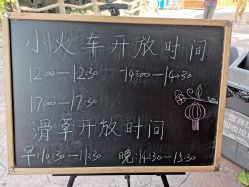 小火车开放时间
12:00—12:30 14:00—14:30
17:00—17:30
滑草开放时间
早:10:30—11:30 晚:14:30—15:30